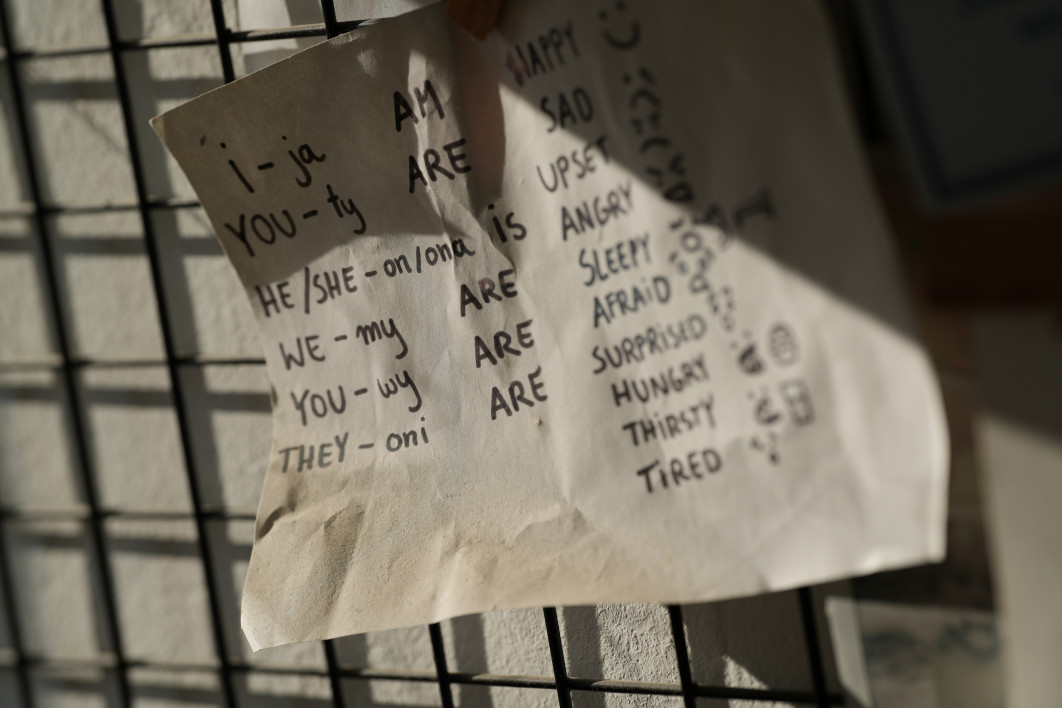 i - ja AM HAPPY
YOU - ty ARE SAD
HE/SHE - on/ona is UPSET
WE - my ARE ANGRY
YOU - wy ARE SLEEPY
THEY - oni ARE AFRAiD
SURPRISED
HUNGRY
THiRSTY
TiRED